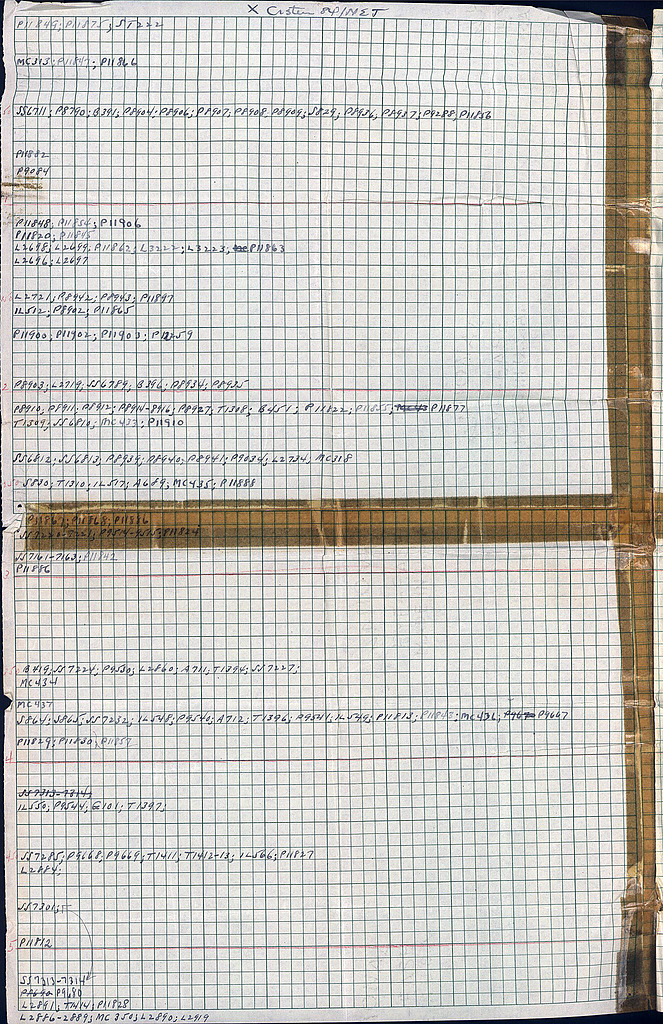 P11849; P11875; ST222
MC313; P11847; P11866
SS6711; P8790; B391; P8904; P8906; P8907; P8908; P8909; S829; P8936; P8937; P9288; P11856
P11882
P9084
P11848; P11854; P11906
P11820; P11845
L2698; L2699; P11862; L3222; L3223; P11863
L2696; L2697
L2721; P8942; P8943; P11897
IL512; P8902; P11865
P11900; P11902; P11903; P12259
P8903; L2719; SS6789; B396; P8934; P8935
P8910; P8911; P8912; P8914-8916; P8927; T1308; B451; P11122; P11855; P11877
T1309; SS6810; MC433; P11910
SS6812; SS6813; P8939; P8940; P8941; P9034; L2734; MC318
S830; T1310; IL517; A689; MC435; P11888
P11867; P11868; P11886
SS7220-7221; P9514-9515; P11824
SS7161-7163; P11842
P11886
3
B419; SS7224; P9530; L2860; A711; T1394; SS7227;
MC434
MC437
S864; S865; SS7232; IL548; P9540; A712; T1396; P9541; IL549; P11813; P11843; MC436; P9667
P11829; P11830; P11859
4
SS7313-7314;
IL550; P9544; G101; T1397;
SS7285; P9668; P9669; T1411; T1412-13; IL566; P11827
L2884;
SS7301;
5 P11812
SS7313-7314
P9680
L2891; T1414; P11828
L2886-2889; MC350; L2890; L2919